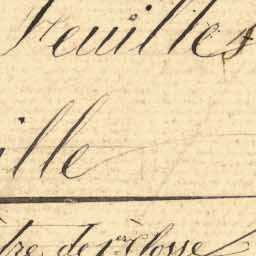 Feuilles
ille
tre de 1re Classe